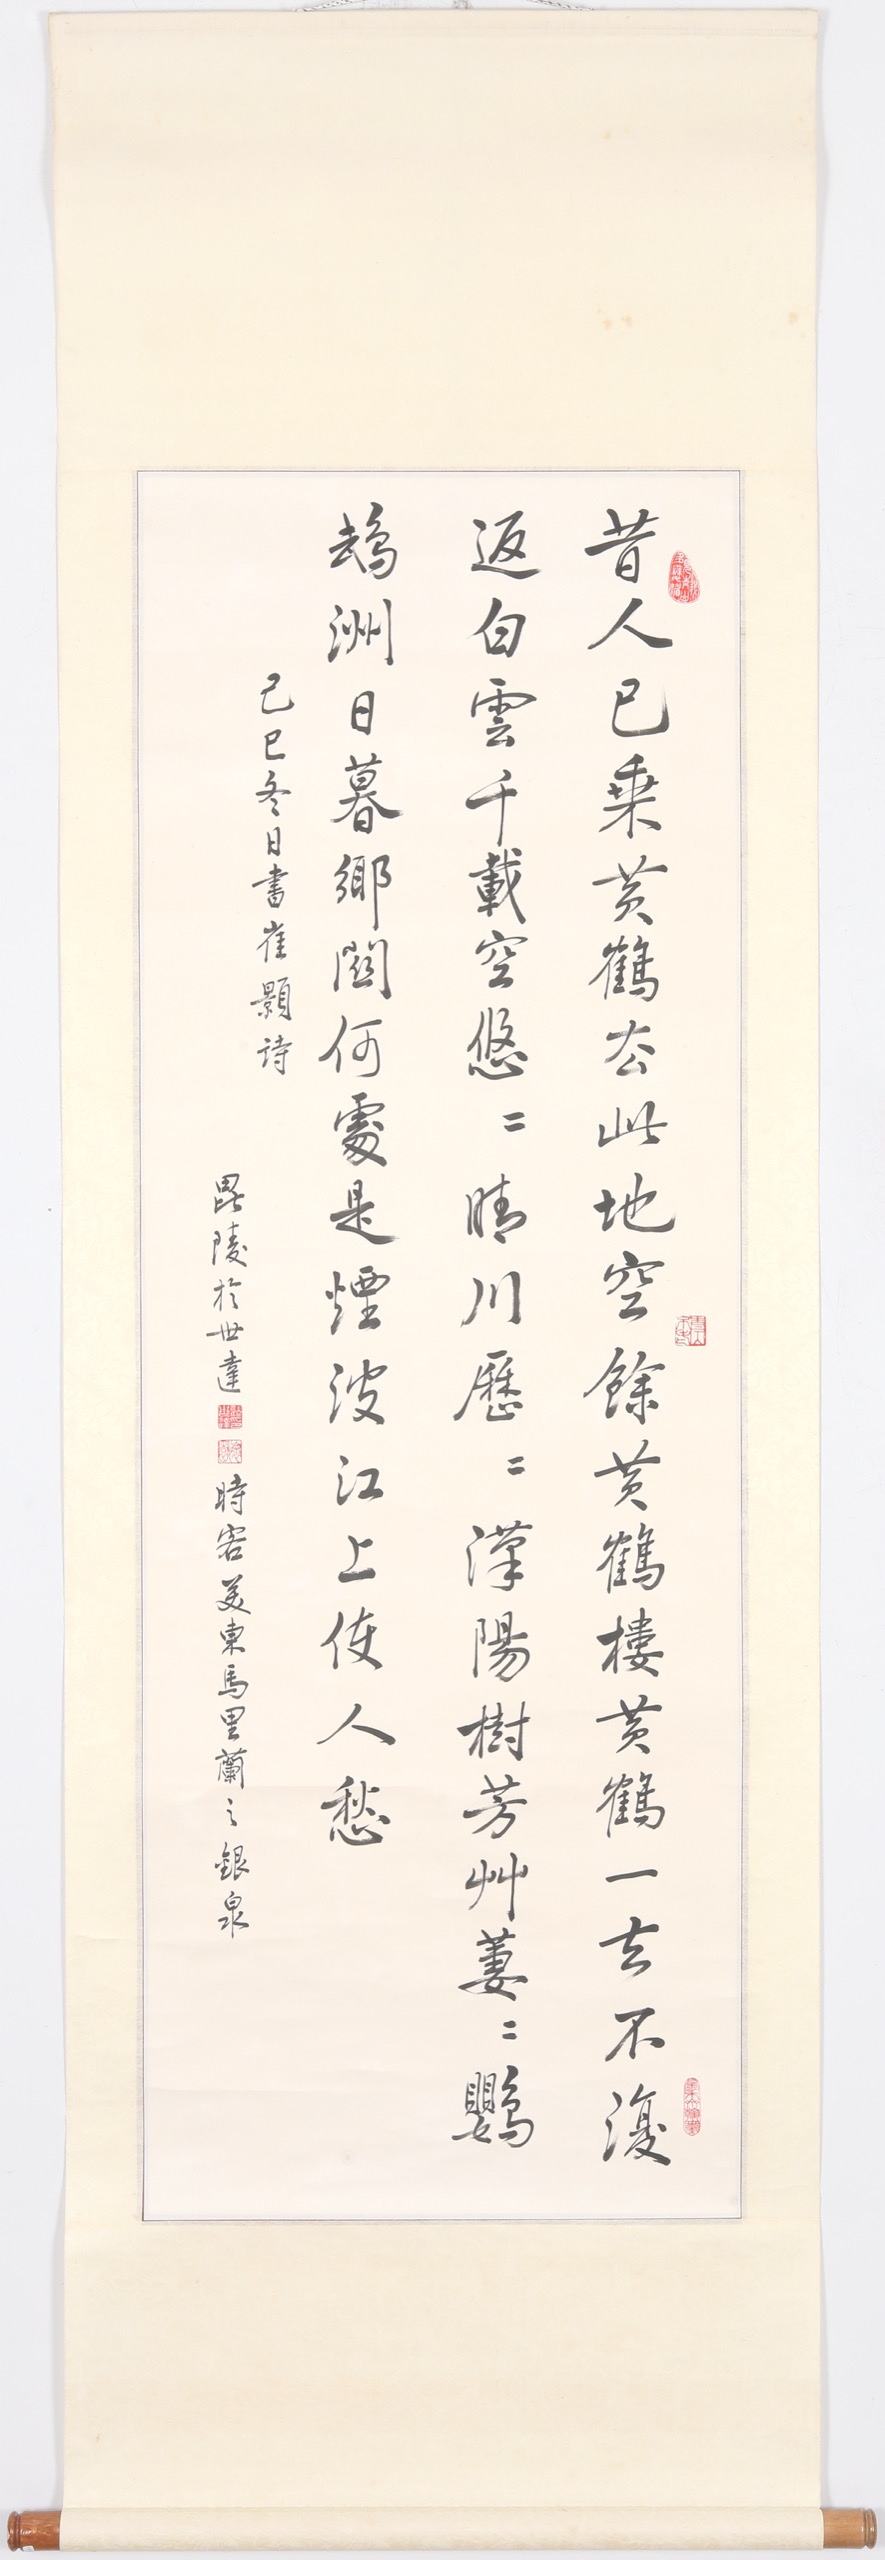 昔人已乘黃鶴去此地空餘黃鶴樓黃鶴一去不復
返白雲千載空悠〻晴川歷〻漢陽樹芳艸萋〻鸚
鵡洲日暮鄉關何處是煙波江上使人愁
己巳冬日書崔顥詩
毘陵於世達 時客美東馬里蘭之銀泉